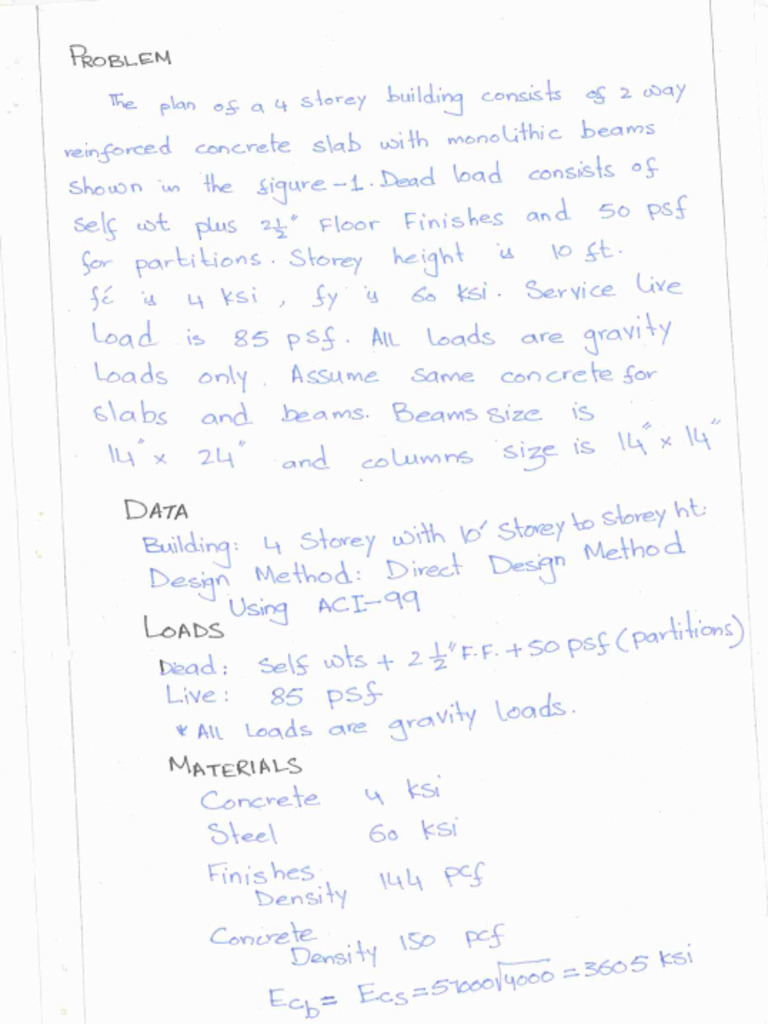 PROBLEM
The plan of a 4 storey building consists of 2 way
reinforced concrete slab with monolithic beams
shown in the figure-1. Dead load consists of
self wt plus 2½" Floor Finishes and 50 psf
for partitions. Storey height is 10 ft.
fć is 4 ksi, fy is 60 ksi. Service live
Load is 85 psf. All loads are gravity
loads only. Assume same concrete for
slabs and beams. Beams size is
14" x 24" and columns size is 14" x 14"
DATA
Building: 4 Storey with 10' Storey to Storey ht.
Design Method: Direct Design Method
Using ACI-99
LOADS
Dead: Self wts + 2 ½" F.F. + 50 psf (partitions)
Live: 85 psf
* All Loads are gravity loads.
MATERIALS
Concrete 4 ksi
Steel 60 ksi
Finishes
Density 144 pcf
Concrete
Density 150 pcf
Ecb = Ecs = 57000√4000 = 3605 ksi